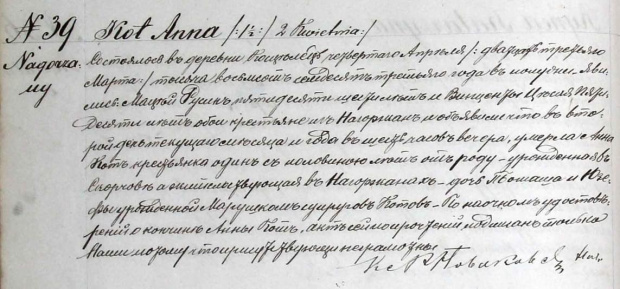 № 39 Kot Anna /:1½:/ 2 Kwietnia:/
Nagorza: Состоялось въ деревни Кощолецъ четвертаго Апрѣля /: двадцать третьяго
ny Марта:/ тысяча восемьсотъ семдесятъ третьяго года въ полудни. Яви
лись: Мацѣй пятидесяти лѣтъ и Винценты пяти
десяти лѣтъ обои крестьяне изъ Нагоржанъ и объявили что въ вто
рой день текущаго мѣсяца и года въ шесть часовъ вечера, умерла Анна
Котъ крестьянка одинъ съ половиною лѣтъ отъ роду урожденная въ
а жительствующая въ Нагоржанахъ дочь Томаша и Юзе
фы урожденной супруговъ Котовъ. По наочномъ удостовѣ
реніи о кончинѣ Анны Котъ, актъ сей по прочтеніи подписанъ только
Нами потому что присутствующи неграмотны
Кс